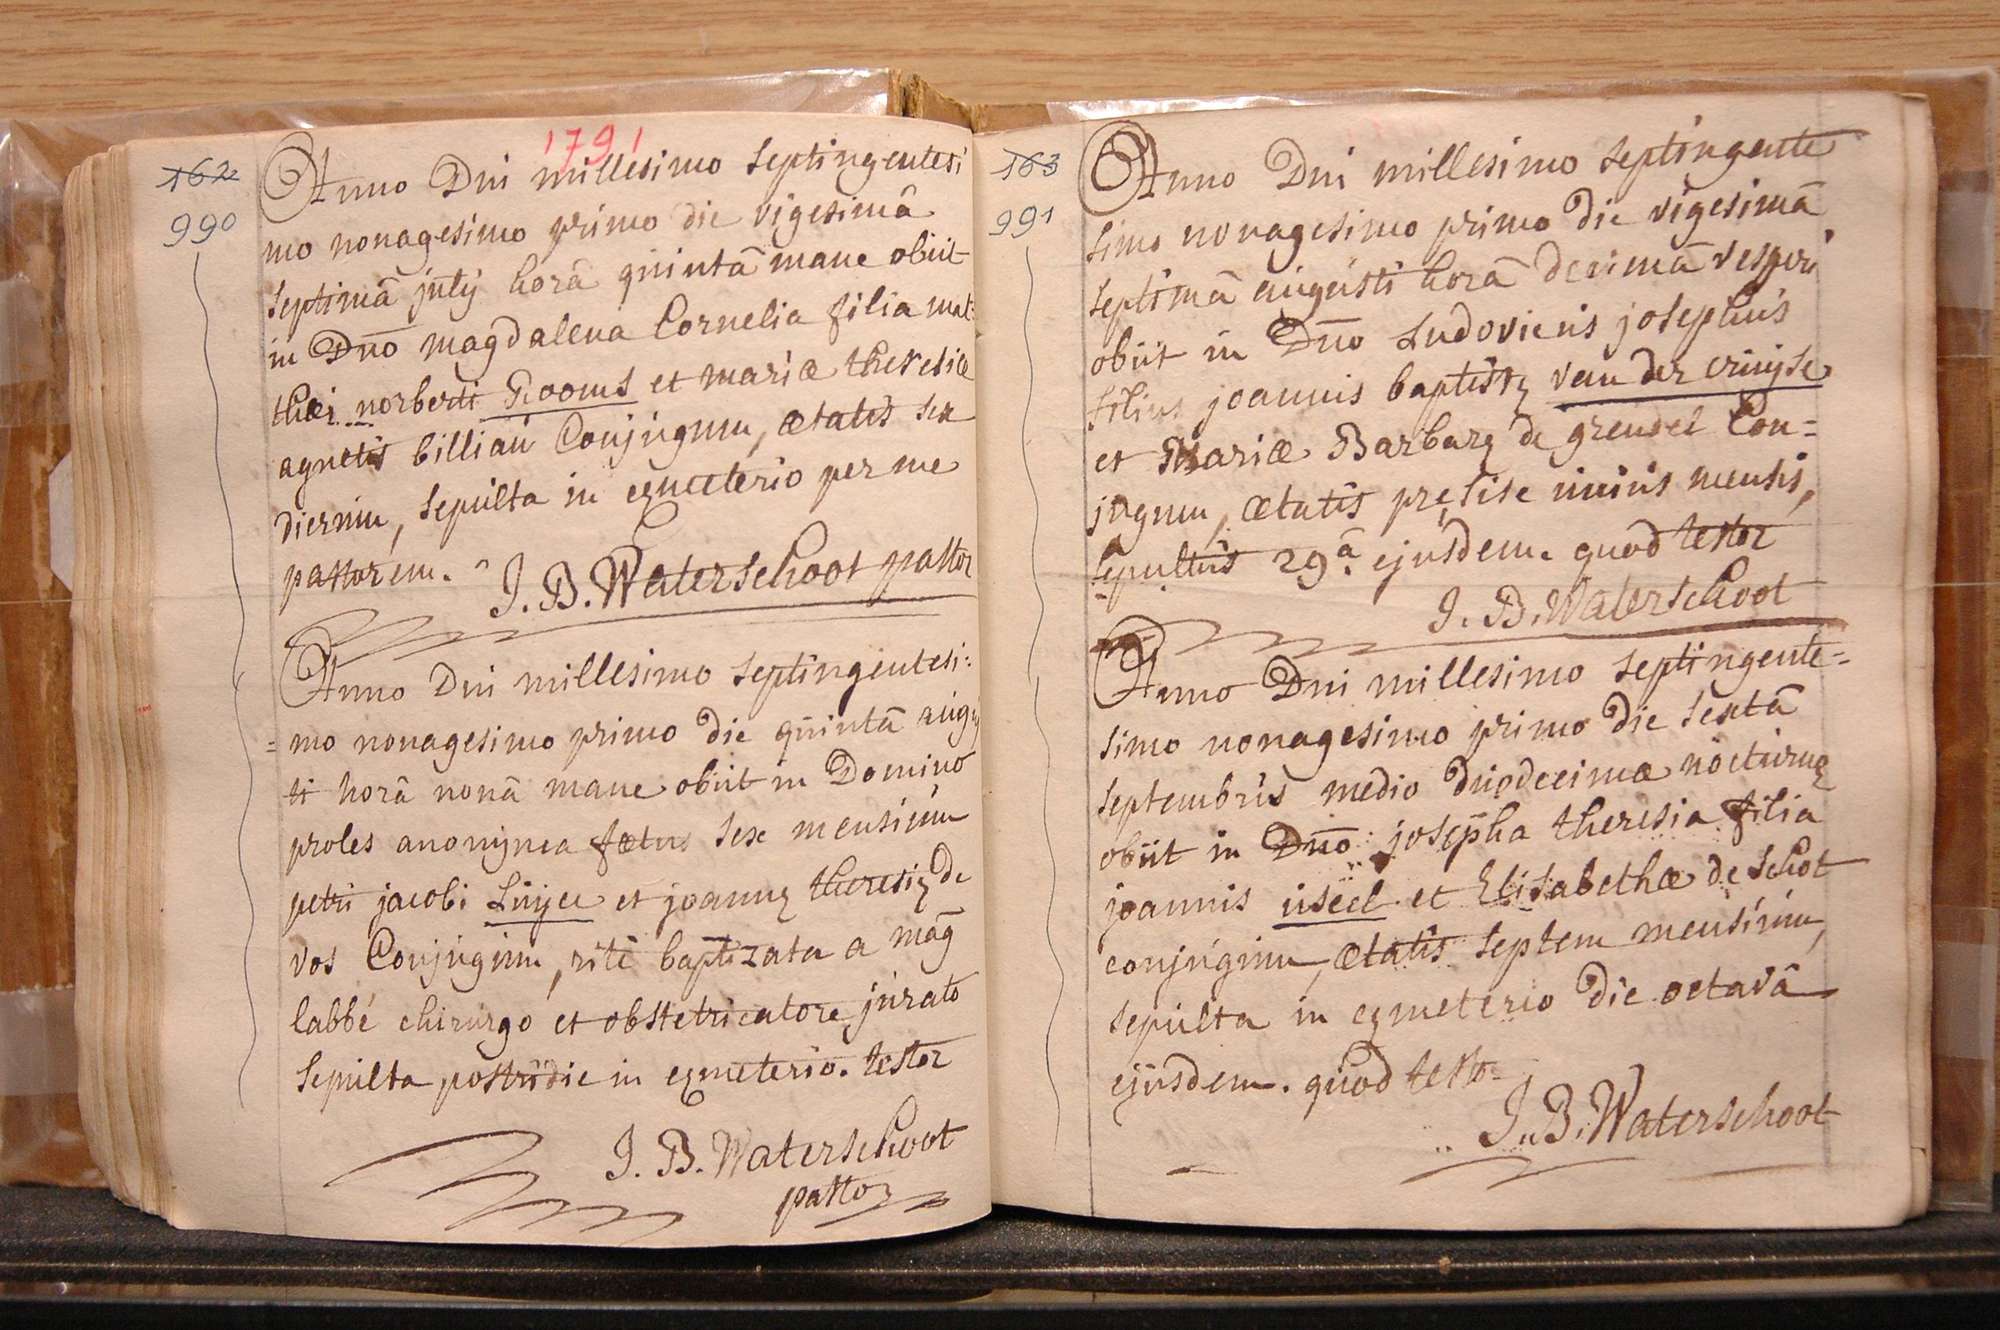 1791
162
990
Anno Dni millesimo septingentesi
mo nonagesimo primo die vigesimâ
septimâ julij horâ quintâ mane obiit
in Dno magdalena Cornelia filia mat-
thæi norberti Rooms et mariæ theresiæ
agnetis billiau Conjugum, ætatis sex
dierum, sepulta in cęmeterio per me
pastorem. J. B. Waterschoot pastor
Anno Dni millesimo septingentesi=
=mo nonagesimo primo die quintâ augus
ti horâ nonâ mane obiit in Domino
proles anonyma fœtus sex mensium
petri jacobi Luyck et joannę theresię de
vos Conjugum, rite baptizata a mag
labbé chirurgo et obstetricatore jurato
sepulta postridie in cęmeterio. testor
J. B. Waterschoot
pastor
163
991
Anno Dni millesimo septingente
simo nonagesimo primo die vigesimâ
septimâ augusti horâ decimâ vesperi
obiit in Dno Ludovicus josephus
filius joannis baptistę van der cruyse
et Mariæ Barbarę de grendel Con=
jugum, ætatis pręcise unius mensis,
sepultus 29â ejusdem. quod testor
J. B. Waterschoot
Anno Dni millesimo septingente=
simo nonagesimo primo die sextâ
septembris medio duodecimæ nocturnę
obiit in Dno josepha theresia filia
joannis useel et Elisabethæ de schot
conjugum, ætatis septem mensium,
sepulta in cęmeterio die octavâ
ejusdem. quod testor
J. B. Waterschoot